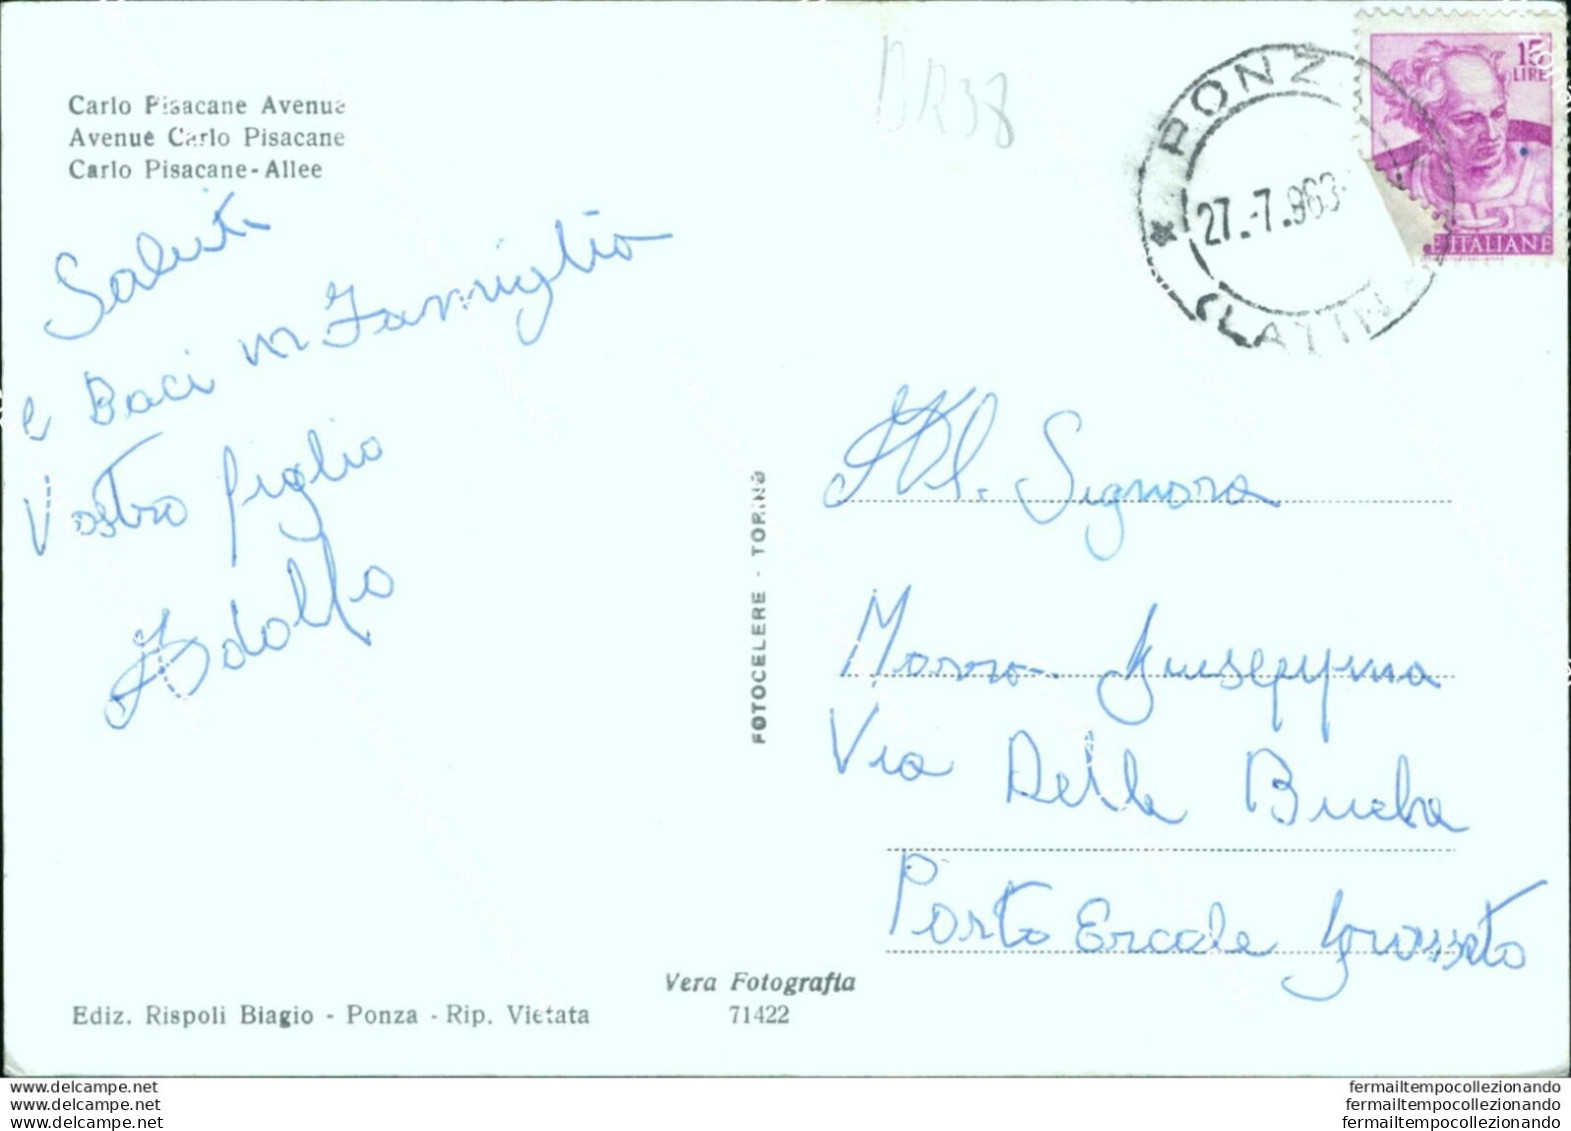 Carlo Pisacane Avenue
Avenue Carlo Pisacane
Carlo Pisacane-Allee
BR38
15
LIRE
ITALIANE
PONZ
27.-7.963
(LATIN
Saluti
e Baci in Famiglia
Vostro figlio
Adolfo
FOTOCELERE - TORINO
Al. Signora
Giuseppina
Via Della Bucha
Porto Ercole Grosseto
Vera Fotografia
71422
Ediz. Rispoli Biagio - Ponza - Rip. Vietata
www.delcampe.net
www.delcampe.net
www.delcampe.net
fermailtempocollezionando
fermailtempocollezionando
fermailtempocollezionando